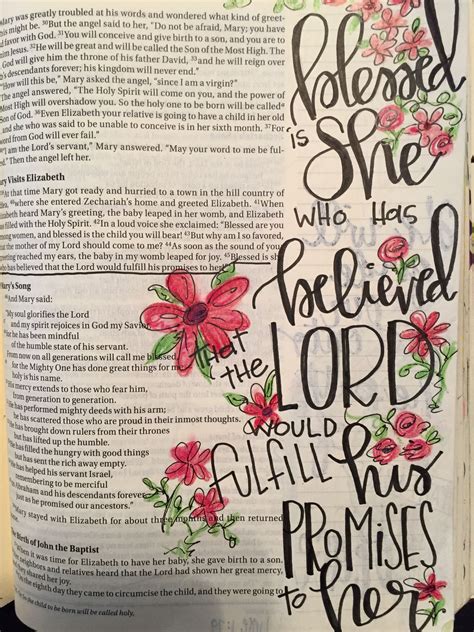 Mary was greatly troubled at his words and wondered what kind of greet-
this might be. 30But the angel said to her, "Do not be afraid, Mary; you have
d favor with God. 31You will conceive and give birth to a son, and you are to
him Jesus. 32He will be great and will be called the Son of the Most High. The
God will give him the throne of his father David, 33and he will reign over
's descendants forever; his kingdom will never end."
"How will this be," Mary asked the angel, "since I am a virgin?"
The angel answered, "The Holy Spirit will come on you, and the power of
Most High will overshadow you. So the holy one to be born will be called
Son of God. 36Even Elizabeth your relative is going to have a child in her old
and she who was said to be unable to conceive is in her sixth month. 37For
word from God will ever fail."
am the Lord's servant," Mary answered. "May your word to me be ful-
" Then the angel left her.
ry Visits Elizabeth
At that time Mary got ready and hurried to a town in the hill country of
40where she entered Zechariah's home and greeted Elizabeth. 41When
zabeth heard Mary's greeting, the baby leaped in her womb, and Elizabeth
filled with the Holy Spirit. 42In a loud voice she exclaimed: "Blessed are you
ng women, and blessed is the child you will bear! 43But why am I so favored,
the mother of my Lord should come to me? 44As soon as the sound of your
eeting reached my ears, the baby in my womb leaped for joy. 45Blessed is she
has believed that the Lord would fulfill his promises to her!"
Mary's Song
And Mary said:
"My soul glorifies the Lord
and my spirit rejoices in God my Savior,
he has been mindful
of the humble state of his servant.
From now on all generations will call me blessed,
for the Mighty One has done great things for me
holy is his name.
His mercy extends to those who fear him,
from generation to generation.
He has performed mighty deeds with his arm;
he has scattered those who are proud in their inmost thoughts.
He has brought down rulers from their thrones
but has lifted up the humble.
He has filled the hungry with good things
but has sent the rich away empty.
He has helped his servant Israel,
remembering to be merciful
Abraham and his descendants forever,
just as he promised our ancestors."
Mary stayed with Elizabeth for about three months and then returned
Birth of John the Baptist
When it was time for Elizabeth to have her baby, she gave birth to a son.
neighbors and relatives heard that the Lord had shown her great mercy,
shared her joy.
the eighth day they came to circumcise the child, and they were going to
the child to be born will be called holy,
blessed
is
She
WHO HAS
believed
that
the
LORD
WOULD
fulfill his
PROMISES
to her